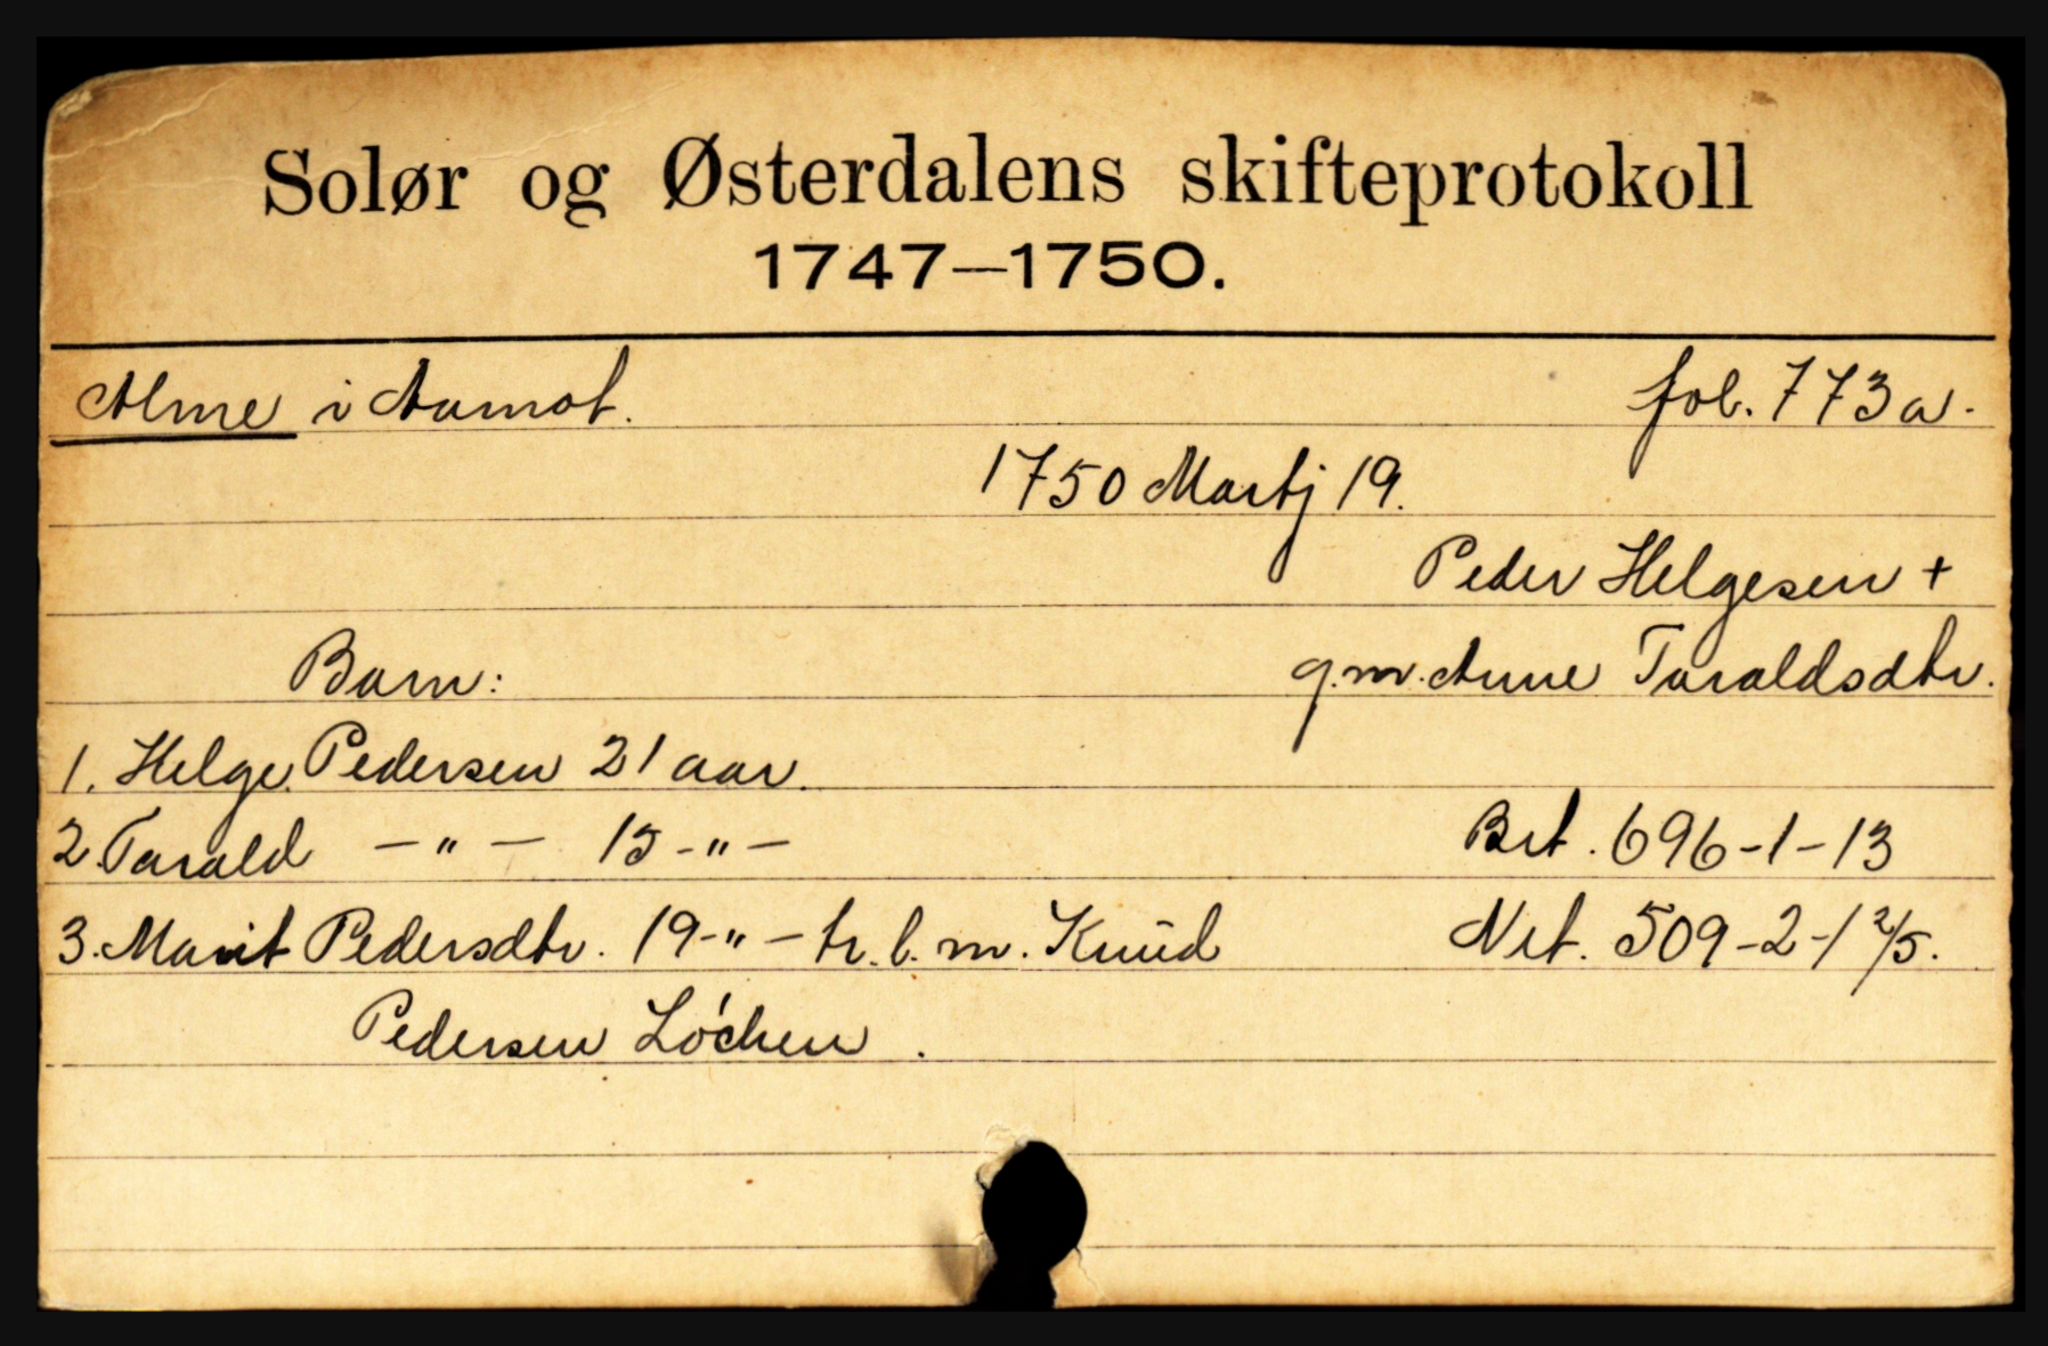 Solør og Østerdalens skifteprotokoll
1747—1750.
Alme i Aamot. fol. 773a.
1750 Martj 19.
Peder Helgesen +
Barn: g.m. Anne Taraldsdtr.
1. Helge Pedersen 21 aar.
2. Tarald — " — 15 - " — Brt. 696-1-13
3. Marit Pedersdtr. 19 - " — tr. l. m. Knud Net. 509-2-1 2/5.
Pedersen Løchen.